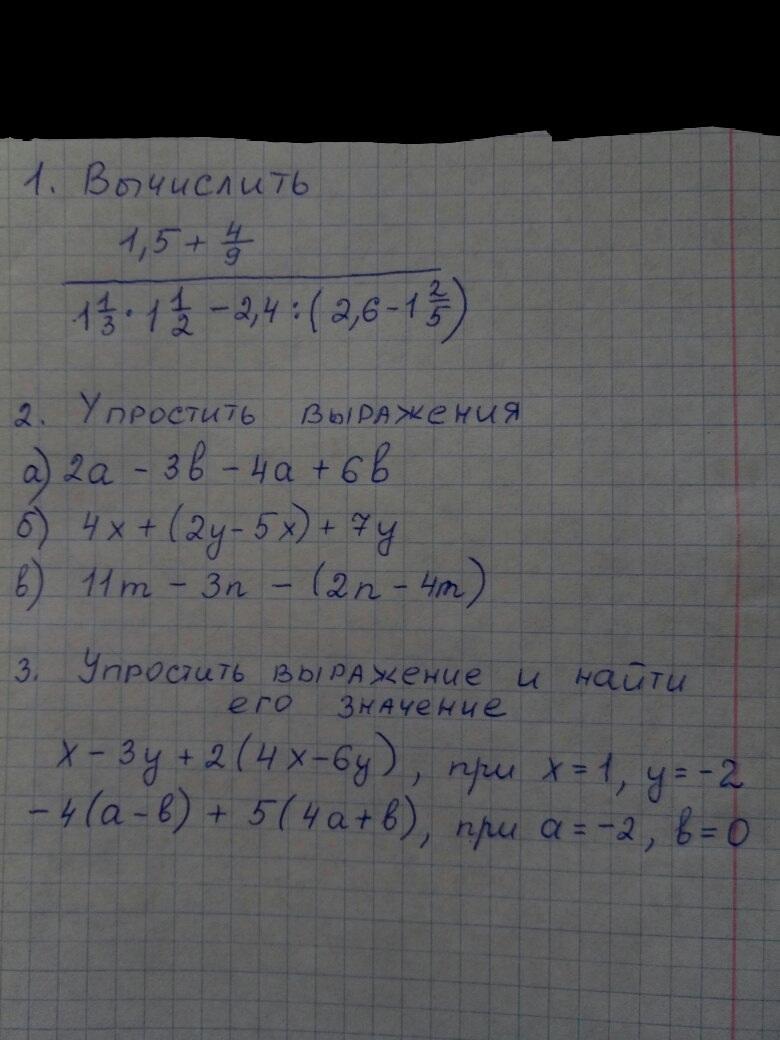 1. Вычислить
1,5 + 4/9
1 1/3 · 1 1/2 - 2,4 : ( 2,6 - 1 2/5 )
2. Упростить выражения
а) 2a - 3в - 4a + 6в
б) 4x + (2y - 5x) + 7y
в) 11m - 3n - (2n - 4m)
3. Упростить выражение и найти
его значение
x - 3y + 2(4x - 6y), при x = 1, y = -2
-4(a - в) + 5(4a + в), при a = -2, в = 0